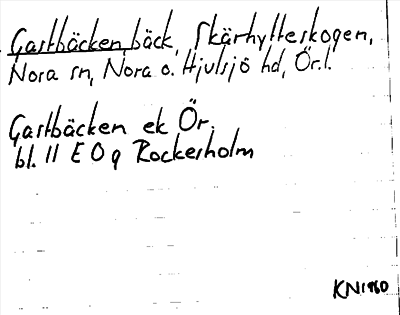 Gastbäcken, bäck, Skärhytteskogen,
Nora sn, Nora o. Hjulsjö hd, Ör.l.
Gastbäcken ek Ör.
bl. 11 E 0 q Rockesholm
KN1980